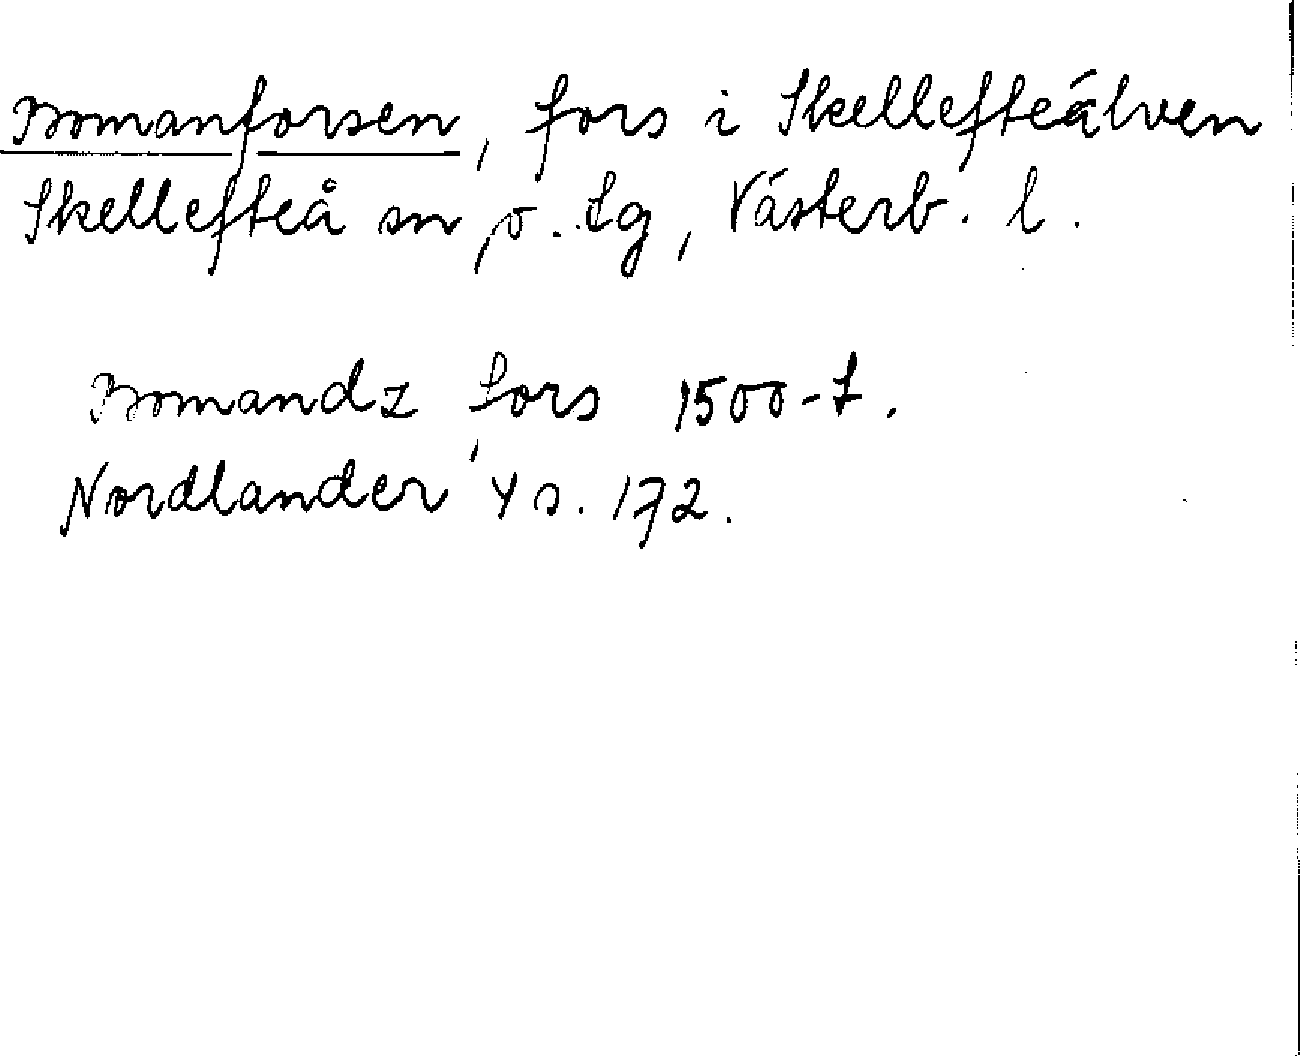 Bomanforsen, fors i Skellefteälven
Skellefteå sn, o. tg, Västerb. l.
Bomandz fors 1500-t.
Nordlander, Y s. 172.